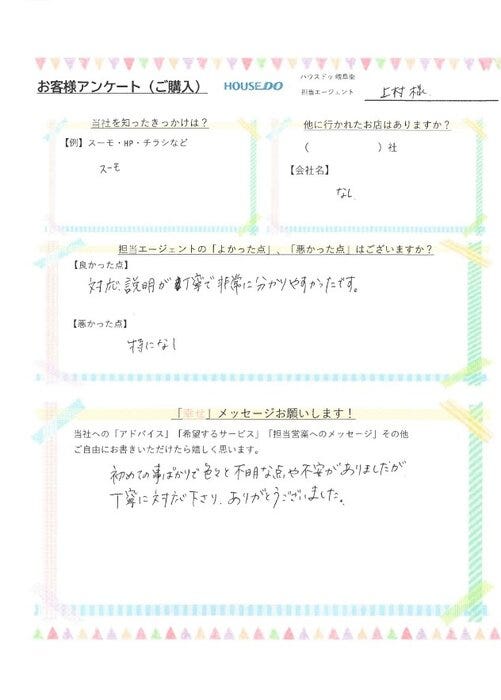 お客様アンケート(ご購入)
HOUSEDO
ハウスドゥ 岐阜東
担当エージェント 上村様
当社を知ったきっかけは?
【例】スーモ・HP・チラシなど
スーモ
他に行かれたお店はありますか?
( )社
【会社名】
なし
担当エージェントの「よかった点」、「悪かった点」はございますか?
【良かった点】
対応、説明が丁寧で非常に分かりやすかったです。
【悪かった点】
特になし
「幸せ」メッセージお願いします!
当社への「アドバイス」「希望するサービス」「担当営業へのメッセージ」その他
ご自由にお書きいただけたら嬉しく思います。
初めての事ばかりで色々と不明な点や不安がありましたが
丁寧に対応下さり、ありがとうございました。